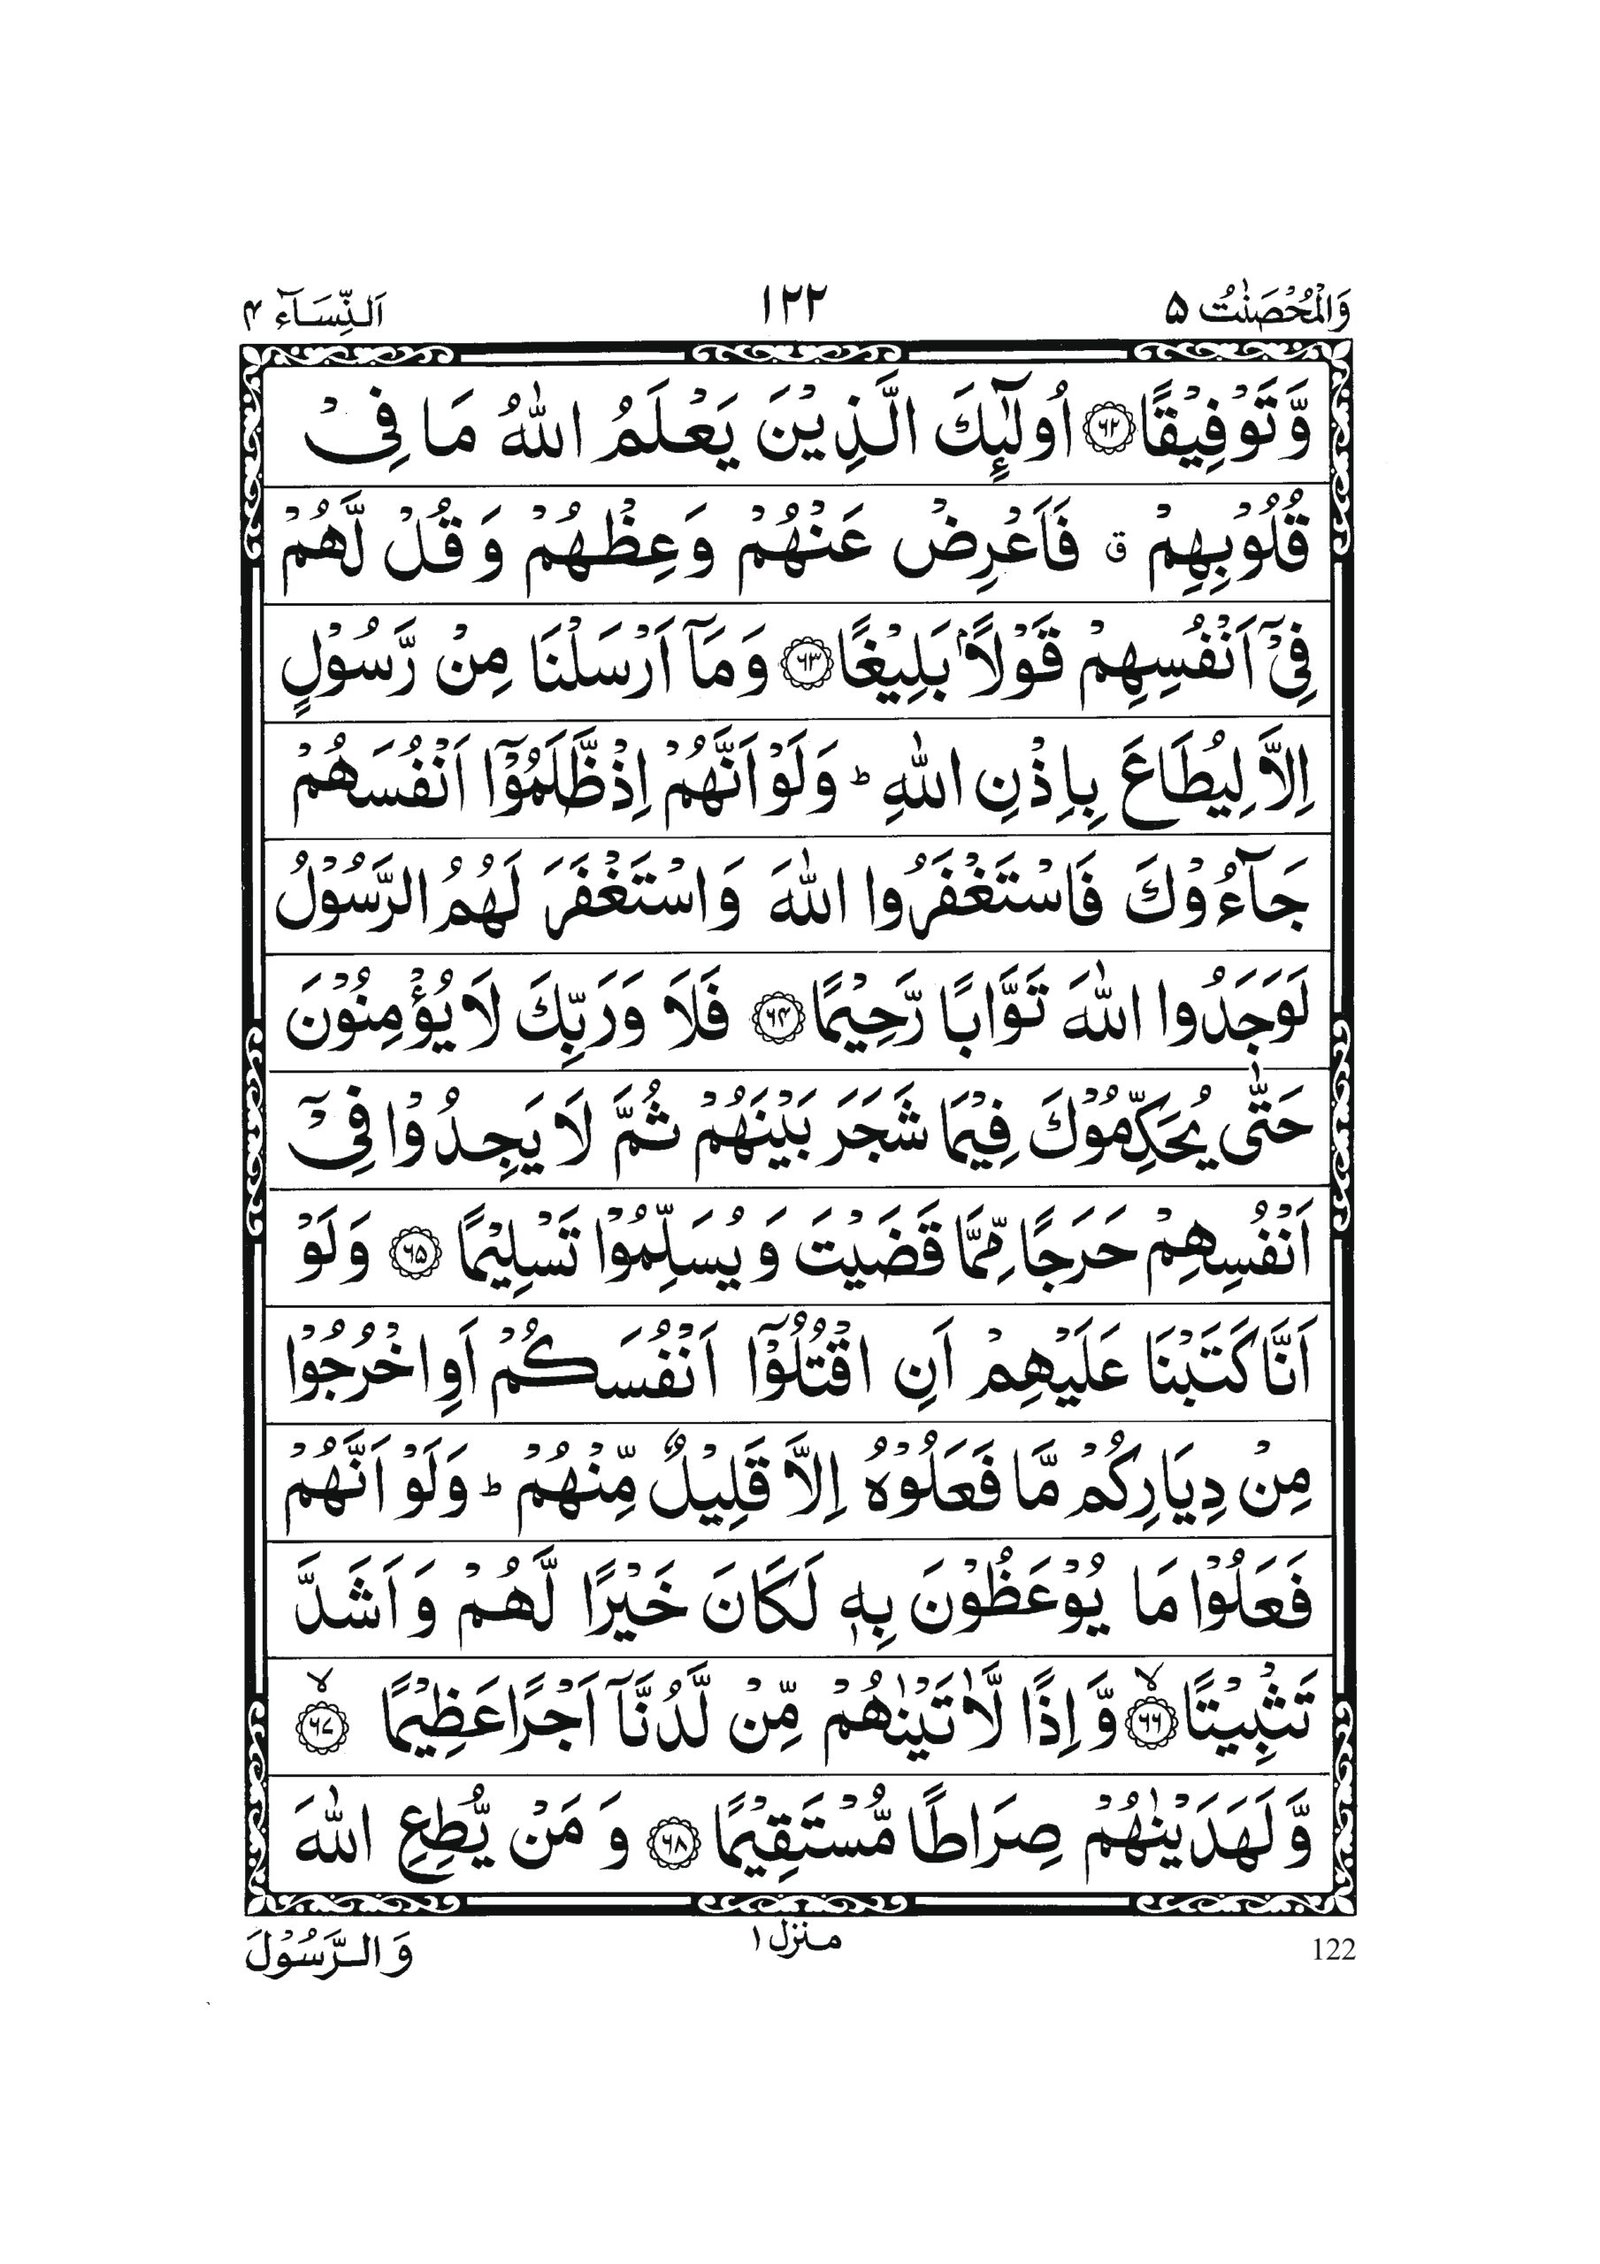 وَالْمُحْصَنٰتُ ۵ ۱۲۲ اَلنِّسَآء ۴
وَّتَوْفِيْقًا ﴿۶۲﴾ اُولٰٓئِكَ الَّذِيْنَ يَعْلَمُ اللّٰهُ مَا فِىْ
قُلُوْبِهِمْ ۗ فَاَعْرِضْ عَنْهُمْ وَعِظْهُمْ وَ قُلْ لَّهُمْ
فِىْٓ اَنْفُسِهِمْ قَوْلًاۢ بَلِيْغًا ﴿۶۳﴾ وَمَآ اَرْسَلْنَا مِنْ رَّسُوْلٍ
اِلَّا لِيُطَاعَ بِاِذْنِ اللّٰهِ ؕ وَلَوْ اَنَّهُمْ اِذْ ظَّلَمُوْٓا اَنْفُسَهُمْ
جَآءُوْكَ فَاسْتَغْفَرُوا اللّٰهَ وَاسْتَغْفَرَ لَهُمُ الرَّسُوْلُ
لَوَجَدُوا اللّٰهَ تَوَّابًا رَّحِيْمًا ﴿۶۴﴾ فَلَا وَرَبِّكَ لَا يُؤْمِنُوْنَ
حَتّٰى يُحَكِّمُوْكَ فِيْمَا شَجَرَ بَيْنَهُمْ ثُمَّ لَا يَجِدُوْا فِىْٓ
اَنْفُسِهِمْ حَرَجًا مِّمَّا قَضَيْتَ وَ يُسَلِّمُوْا تَسْلِيْمًا ﴿۶۵﴾ وَلَوْ
اَنَّا كَتَبْنَا عَلَيْهِمْ اَنِ اقْتُلُوْٓا اَنْفُسَكُمْ اَوِ اخْرُجُوْا
مِنْ دِيَارِكُمْ مَّا فَعَلُوْهُ اِلَّا قَلِيْلٌ مِّنْهُمْ ؕ وَلَوْ اَنَّهُمْ
فَعَلُوْا مَا يُوْعَظُوْنَ بِهٖ لَكَانَ خَيْرًا لَّهُمْ وَ اَشَدَّ
تَثْبِيْتًا ۙ﴿۶۶﴾ وَّ اِذًا لَّاٰتَيْنٰهُمْ مِّنْ لَّدُنَّآ اَجْرًا عَظِيْمًا ۙ﴿۶۷﴾
وَّ لَهَدَيْنٰهُمْ صِرَاطًا مُّسْتَقِيْمًا ﴿۶۸﴾ وَ مَنْ يُّطِعِ اللّٰهَ
122 منزل ۱ وَ الرَّسُوْلَ